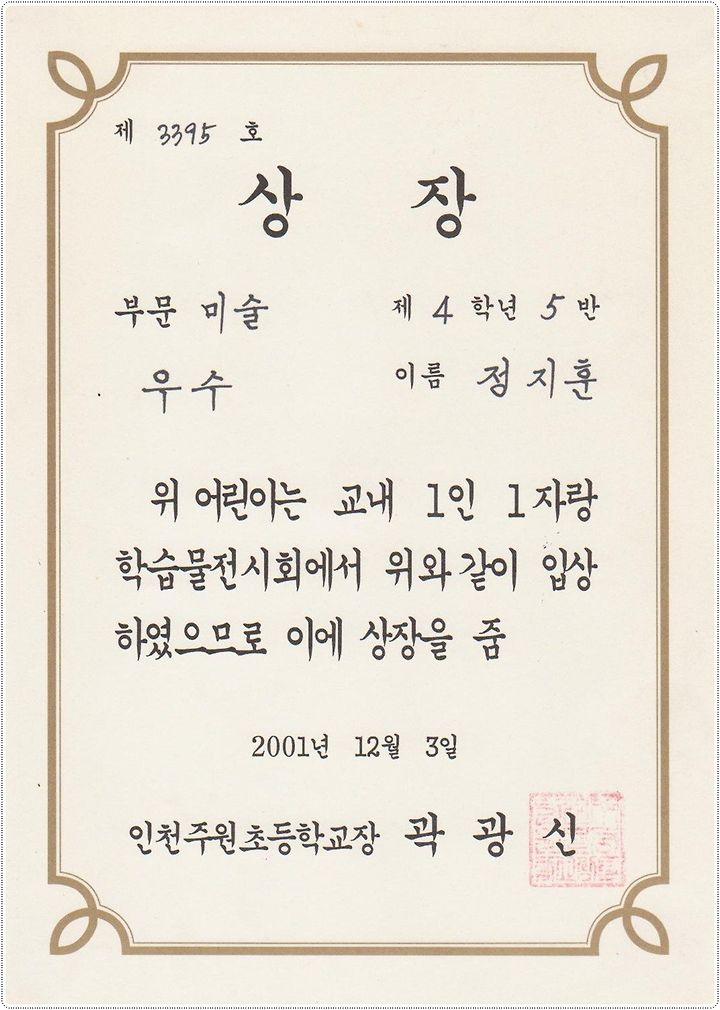 제 3395 호
상 장
부문 미술 제 4 학년 5 반
우수 이름 정지훈
위 어린이는 교내 1인 1자랑
학습물전시회에서 위와같이 입상
하였으므로 이에 상장을 줌
2001년 12월 3일
인천주원초등학교장 곽광신